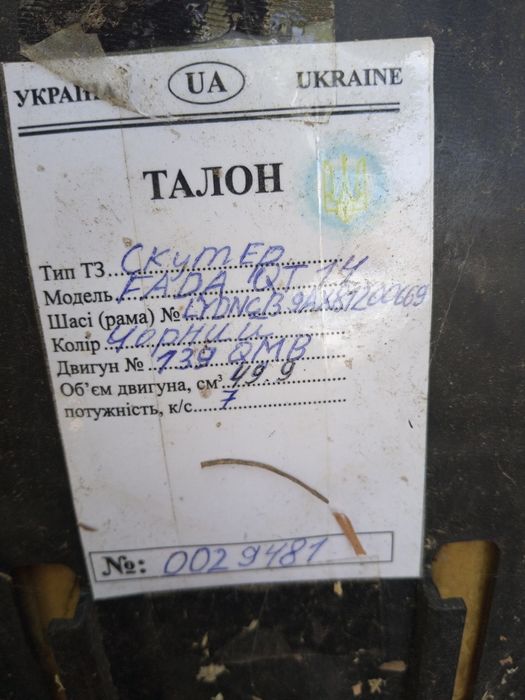 УКРАЇНА UA UKRAINE
ТАЛОН
Тип ТЗ Скутер
Модель FADA QT 14
Шасі (рама) №
Колір Чорний
Двигун № 139 QMB
Об'єм двигуна, см³ 49.9
потужність, к/с 7
№: 0029481